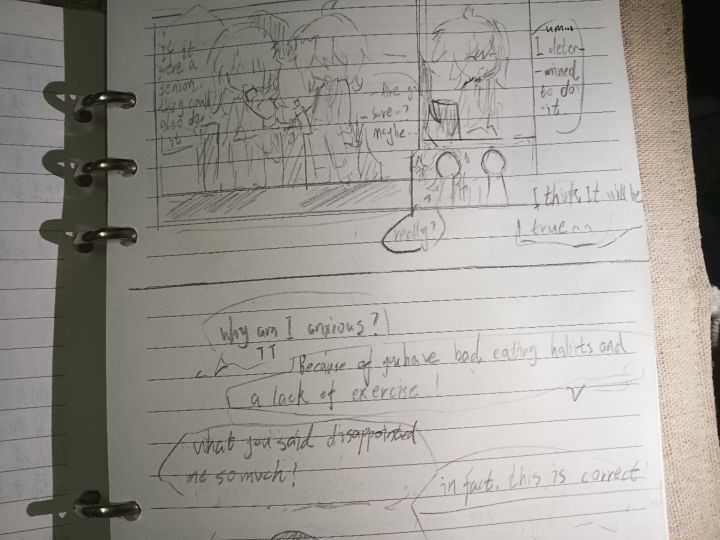 If it
were a
also do
it
Are y
sure..?
maybe..
um..
I deter-
-mned
to do
it.
really?
I think It will be
true^^
why am I anxious?
TT
Because of you have bad eating habits and
a lack of exercise!
what you said disappointed
me so much!
in fact. this is correct!